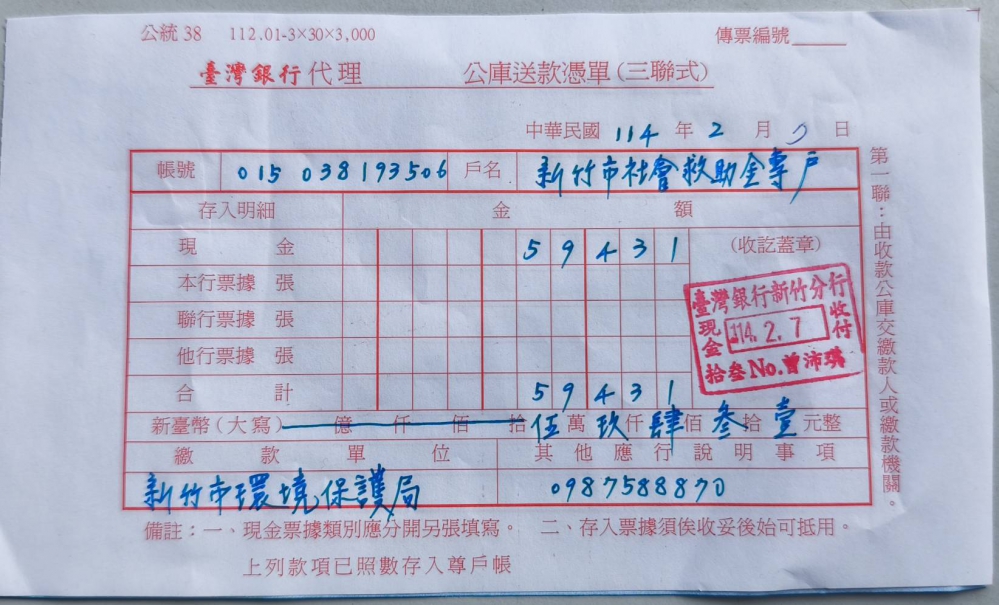 公統 38 112.01-3×30×3,000 傳票編號
臺灣銀行代理 公庫送款憑單(三聯式)
中華民國 114 年 2 月 7 日
帳號 015 038193506 戶名 新竹市社會救助金專戶
存入明細 金 額
現 金 59431 (收訖蓋章)
本行票據 張
聯行票據 張
他行票據 張
合 計 59431
臺灣銀行新竹分行
現金 114.2.7 收付
拾叁No.曾沛琪
新臺幣(大寫) 億 仟 佰 拾 伍 萬 玖 仟 肆 佰 叁 拾 壹 元整
繳 款 單 位 其 他 應 行 說 明 事 項
新竹市環境保護局 0987588870
備註:一、現金票據類別應分開另張填寫。 二、存入票據須俟收妥後始可抵用。
上列款項已照數存入尊戶帳
第一聯:由收款公庫交繳款人或繳款機關。